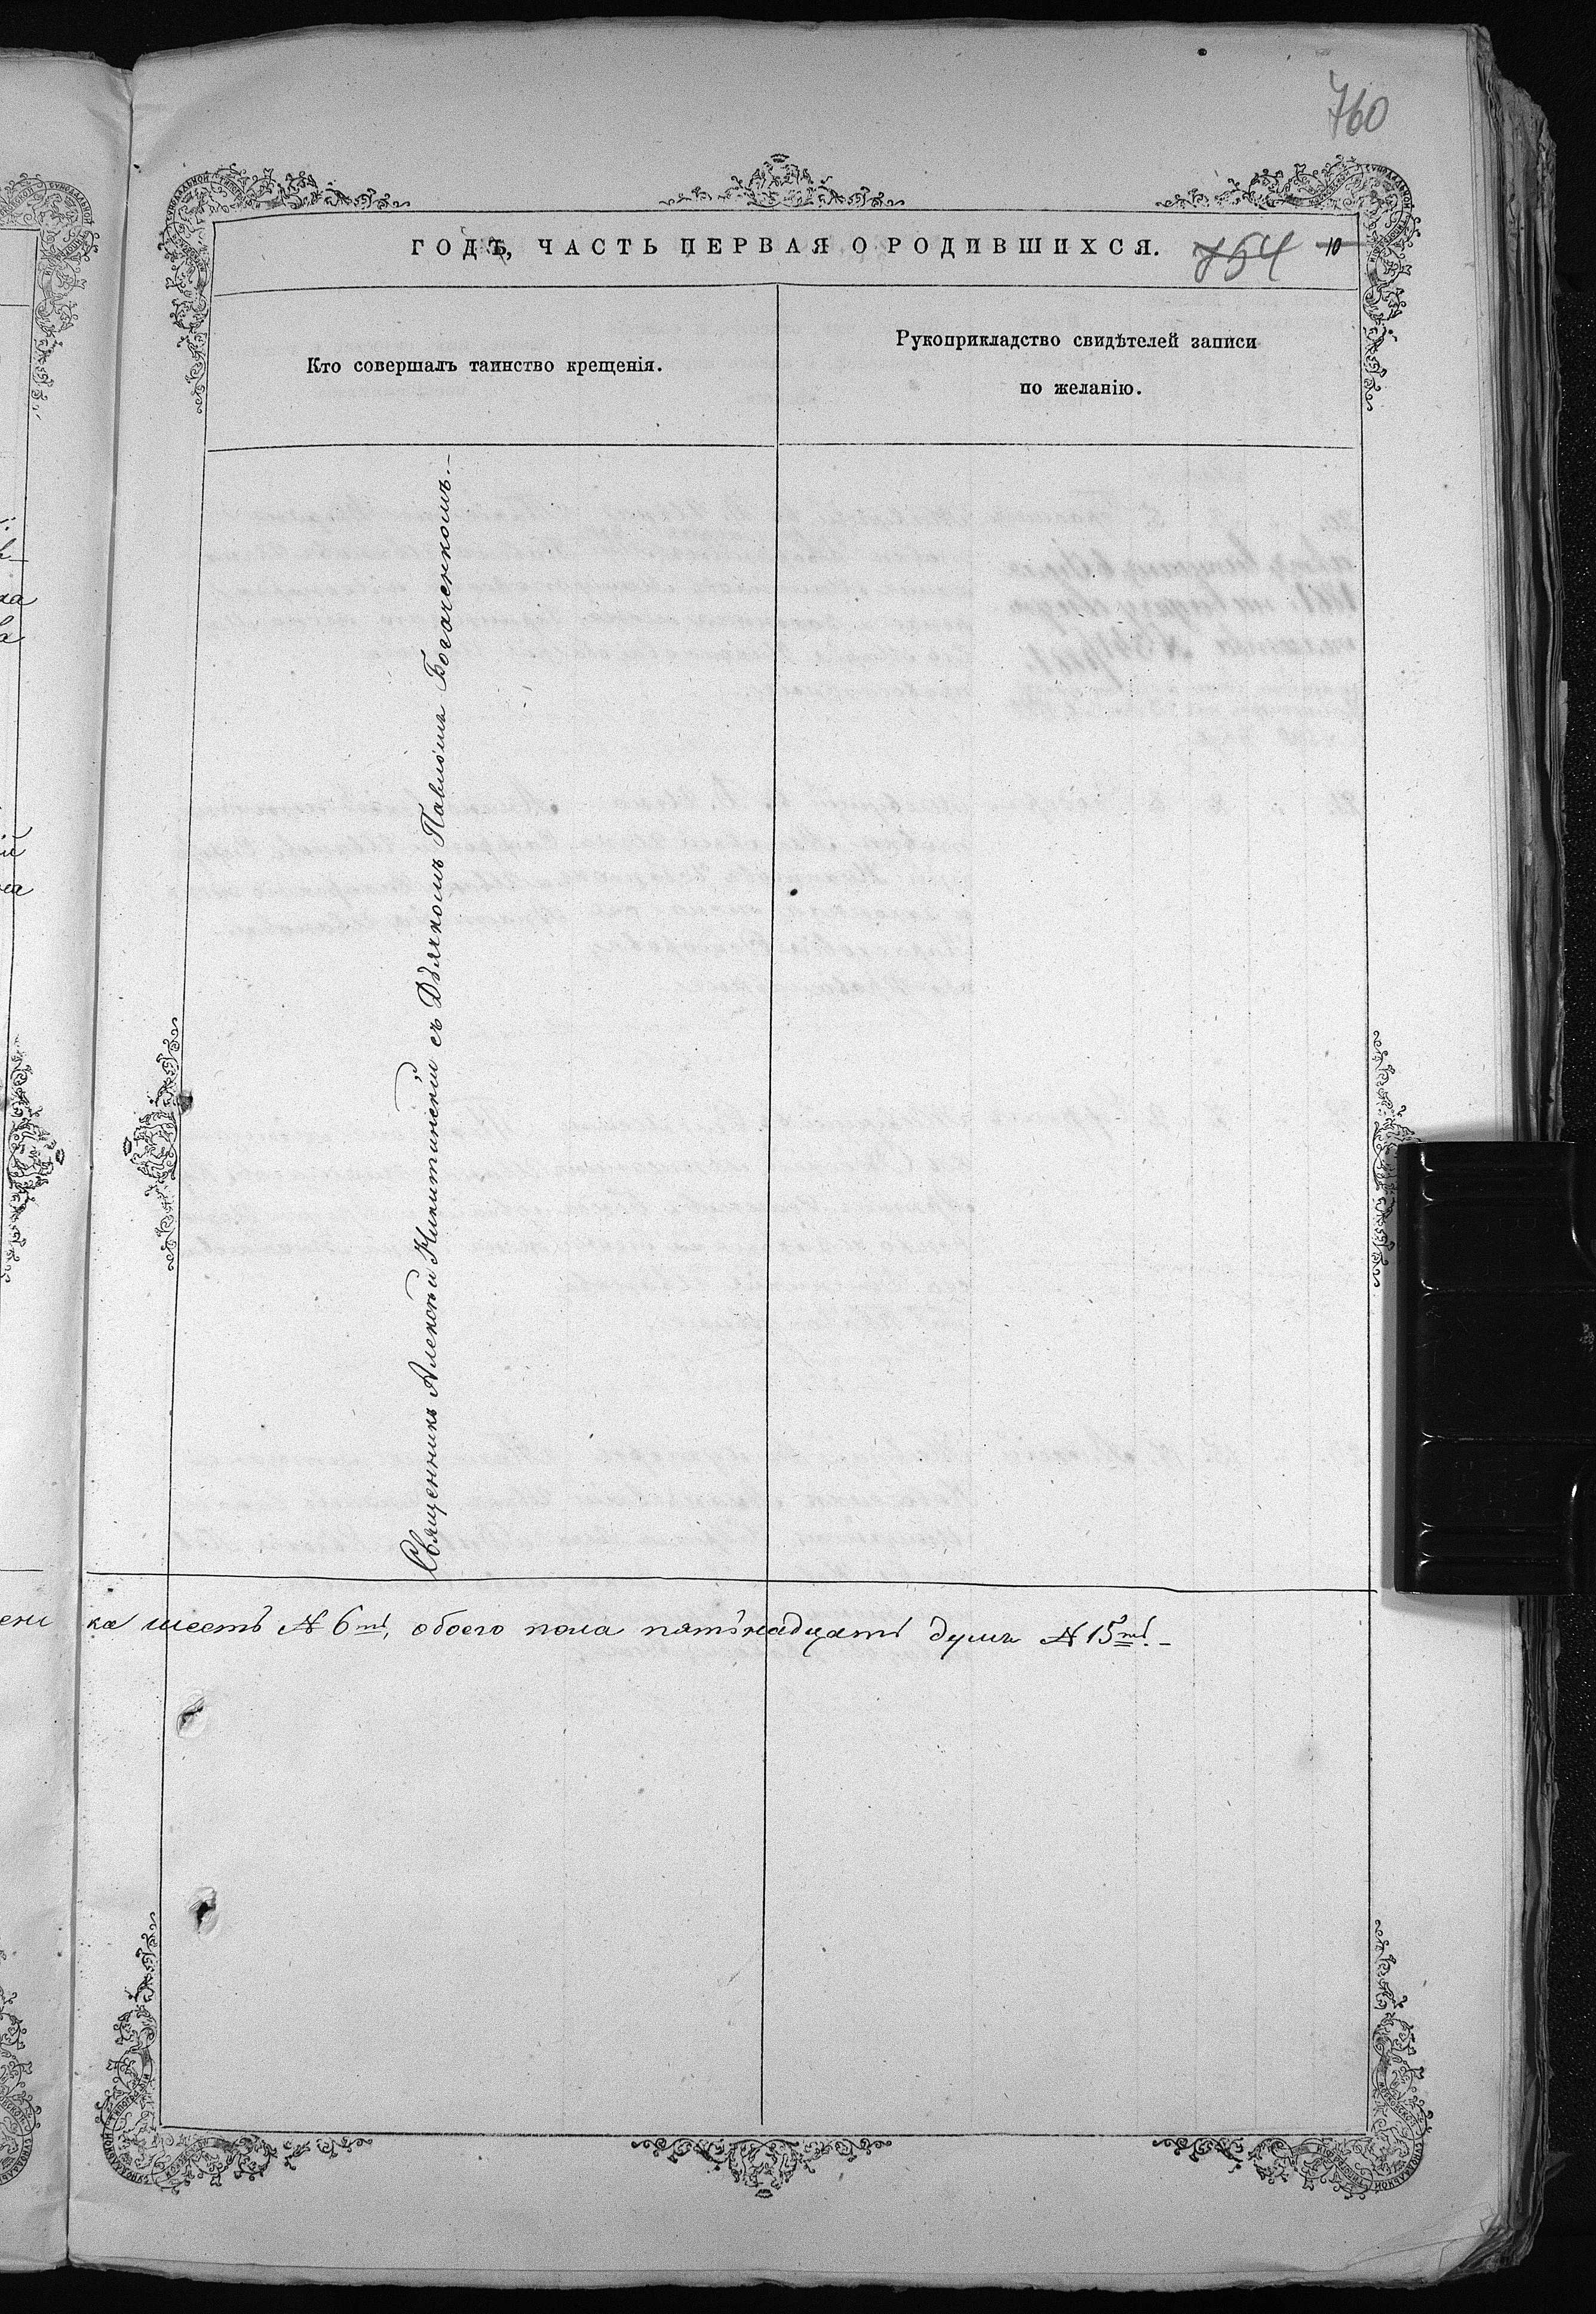 760
ГОДЪ, ЧАСТЬ ПЕРВАЯ О РОДИВШИХСЯ. 754 10
Кто совершалъ таинство крещенія.
Рукоприкладство свидѣтелей записи
по желанію.
Священникъ Алексѣй Никитинскій съ Дьякомъ Павломъ Богаченкомъ.–
ка шесть № 6ть, обоего пола пятьнадцать душъ № 15ть.–